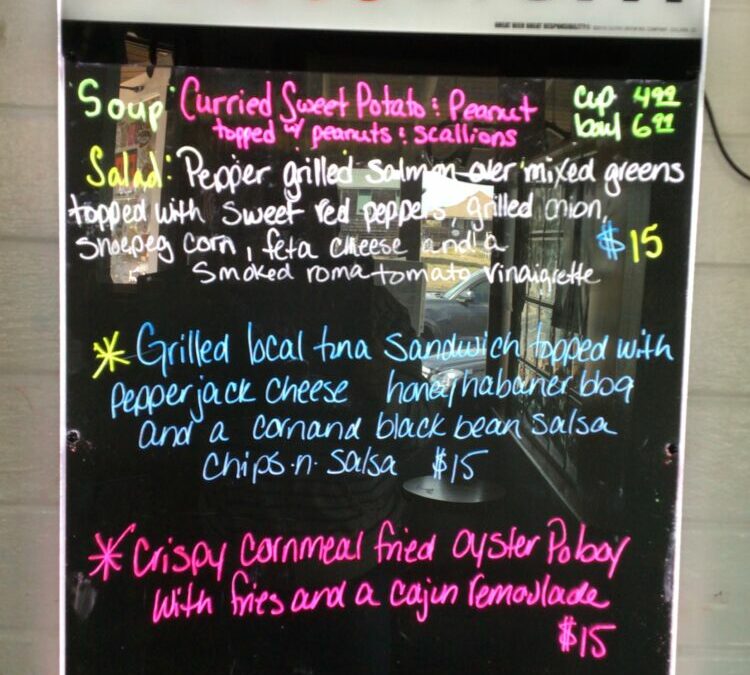 GREAT BEER GREAT RESPONSIBILITY
Soup: Curried Sweet Potato : Peanut cup 4.99
topped w/ peanuts : scallions bowl 6.99
Salad: Pepper grilled salmon over mixed greens
topped with sweet red peppers grilled onion,
shoepeg corn, feta cheese and a $15
smoked roma tomato vinaigrette
* Grilled local tuna sandwich topped with
pepperjack cheese honey/habaner bbq
and a corn and black bean salsa
chips n salsa $15
* Crispy cornmeal fried oyster Poboy
with fries and a cajun remoulade
$15